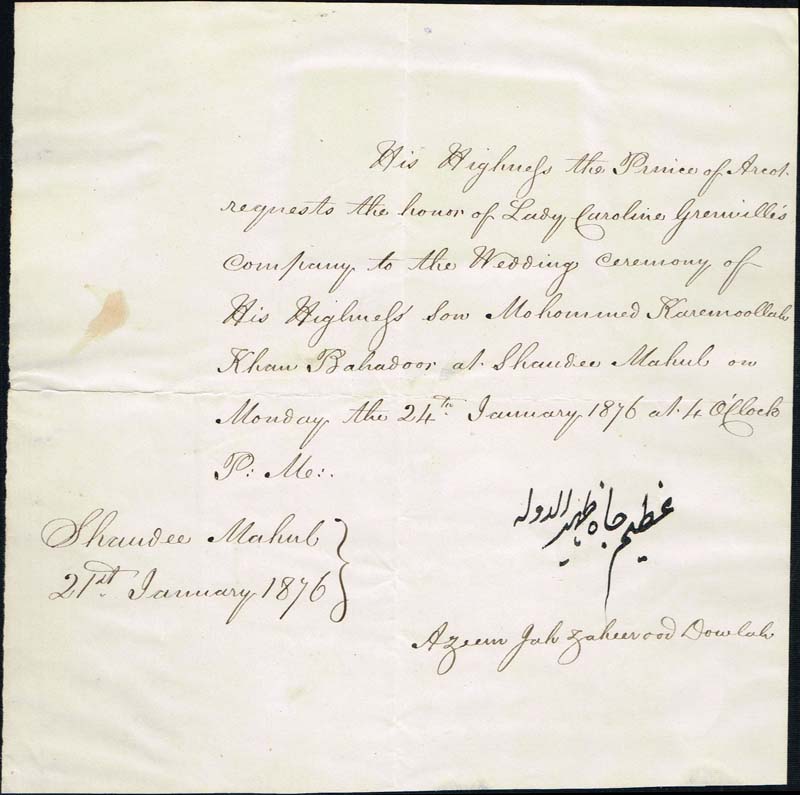 His Highness the Prince of Arcot
requests the honor of Lady Caroline Grenville's
company to the Wedding ceremony of
His Highness' son Mohommed Kareemoollah
Khan Bahadoor at Shaudee Mahul on
Monday the 24th January 1876 at 4 O'Clock
P: M:.
عظیم جاہ ظہیر الدولہ
Shaudee Mahul
21st January 1876
Azeem Jah Zaheerood Dowlah